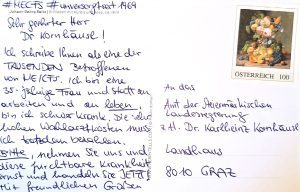 #MECFS #unversorgtseit1969
Sehr geehrter Herr
Dr Kornhäusl!
Ich schreibe Ihnen als eine der
TAUSENDEN Betroffenen
von ME/CFS. Ich bin eine
35-jährige Frau und statt zu
arbeiten und zu leben,
bin ich schwer krank. Die
hohen Wahlarztkosten muss
ich trotzdem bezahlen.
Bitte, nehmen Sie uns und
diese furchtbare Krankheit
ernst und handeln Sie JETZT!
Mit freundlichen Grüßen
ÖSTERREICH 100
An das
Amt der Steiermärkischen
Landesregierung
z.H. Dr. Karlheinz Kornhäusl
Landhaus
8010 GRAZ